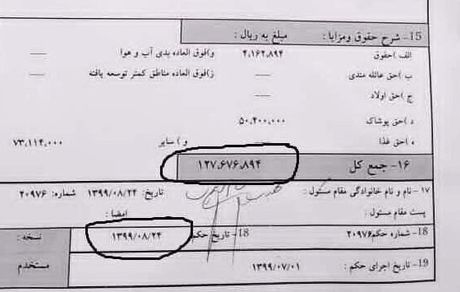 15- شرح حقوق ومزایا : مبلغ به ریال :
الف )حقوق ۴,۱۶۲,۸۹۴ و)فوق العاده بدی آب و هوا ----
ب )حق عائله مندی ---- ز)فوق العاده مناطق کمتر توسعه یافته ----
ج )حق اولاد ----
د )حق پوشاک ۵۰,۴۰۰,۰۰۰
ه )حق غذا ---- و) سایر ۷۳,۱۱۴,۰۰۰
۱۶- جمع کل ۱۲۷,۶۷۶,۸۹۴
۱۷- نام و نام خانوادگی مقام مسئول : تاریخ: ۱۳۹۹/۰۸/۲۴ شماره: ۲۰۹۷۶
پست مقام مسئول : امضا :
18- شماره حکم ۲۰۹۷۶ 18- تاریخ حکم ۱۳۹۹/۰۸/۲۴ نسخه :
19- تاریخ اجرای حکم : ۱۳۹۹/۰۷/۰۱ مستخدم